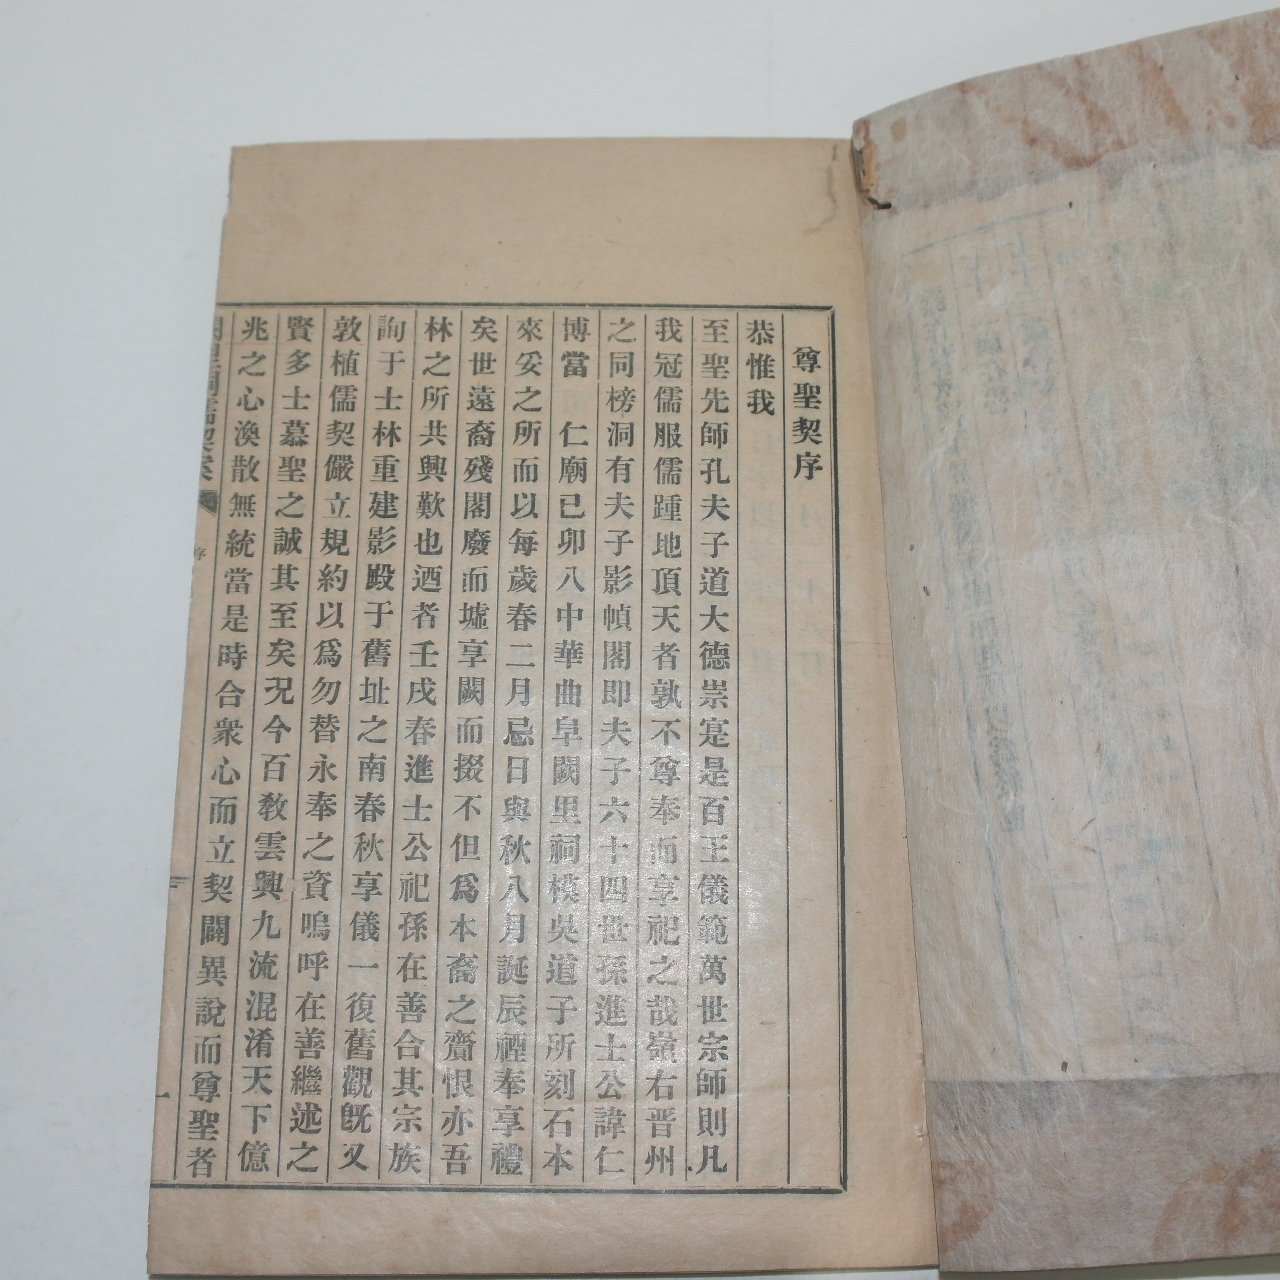 尊聖契序
恭惟我
至聖先師孔夫子道大德崇寔是百王儀範萬世宗師則凡
我冠儒服儒踵地頂天者孰不尊奉而享祀之哉嶺右晋州
之同榜洞有夫子影幀閣即夫子六十四世孫進士公諱仁
博當 仁廟已卯八中華曲阜闕里祠模吳道子所刻石本
來妥之所而以每歲春二月忌日與秋八月誕辰禋奉享禮
矣世遠裔殘閣廢而墟享闕而掇不但爲本裔之齎恨亦吾
林之所共興歎也迺者壬戌春進士公祀孫在善合其宗族
詢于士林重建影殿于舊址之南春秋享儀一復舊觀旣又
敦植儒契儼立規約以爲勿替永奉之資嗚呼在善繼述之
賢多士慕聖之誠其至矣況今百敎雲興九流混淆天下億
兆之心渙散無統當是時合衆心而立契闢異說而尊聖者
儒契案
序
一